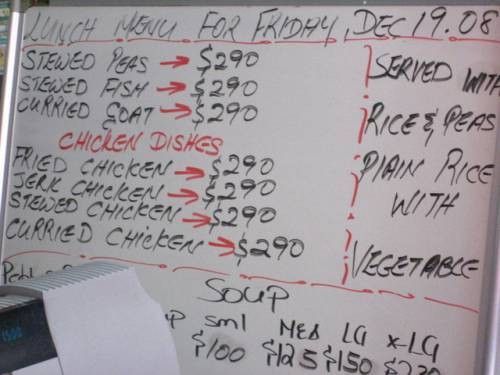 LUNCH MENU FOR FRIDAY, DEC 19.08
STEWED PEAS → $290
STEWED FISH → $290
CURRIED GOAT → $290
CHICKEN DISHES
FRIED CHICKEN → $290
JERK CHICKEN → $290
STEWED CHICKEN → $290
CURRIED CHICKEN → $290
SERVED WITH
RICE & PEAS
PLAIN RICE
WITH
VEGETABLE
SOUP
sml MED LG X-LG
$100 $125 $150